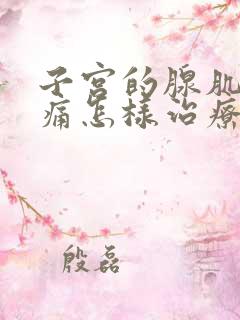 子宫的腺肌
痛怎样治疗
殷磊